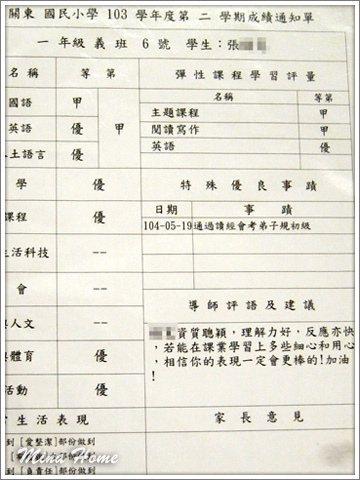 關東 國民小學 103 學年度第 二 學期成績通知單
一 年級 義 班 6 號 學生：張
名稱 等第 彈性課程學習評量
國語 甲 名稱 等第
英語 優 甲 主題課程 甲
土語言 優 閱讀寫作 甲
英語 優
學 優 特殊優良事蹟
課程 優 日期 事蹟
104-05-19 通過讀經會考弟子規初級
生活科技 --
會 -- 導師評語及建議
與人文 -- 資質聰穎，理解力好，反應亦快
與體育 優 ，若能在課業學習上多些細心和用心
活動 優 ，相信你的表現一定會更棒的!加油
!
生活表現 家長意見
到 [愛整潔]部份做到
到 部份做到
到 [負責任]部份做到
Mina Home